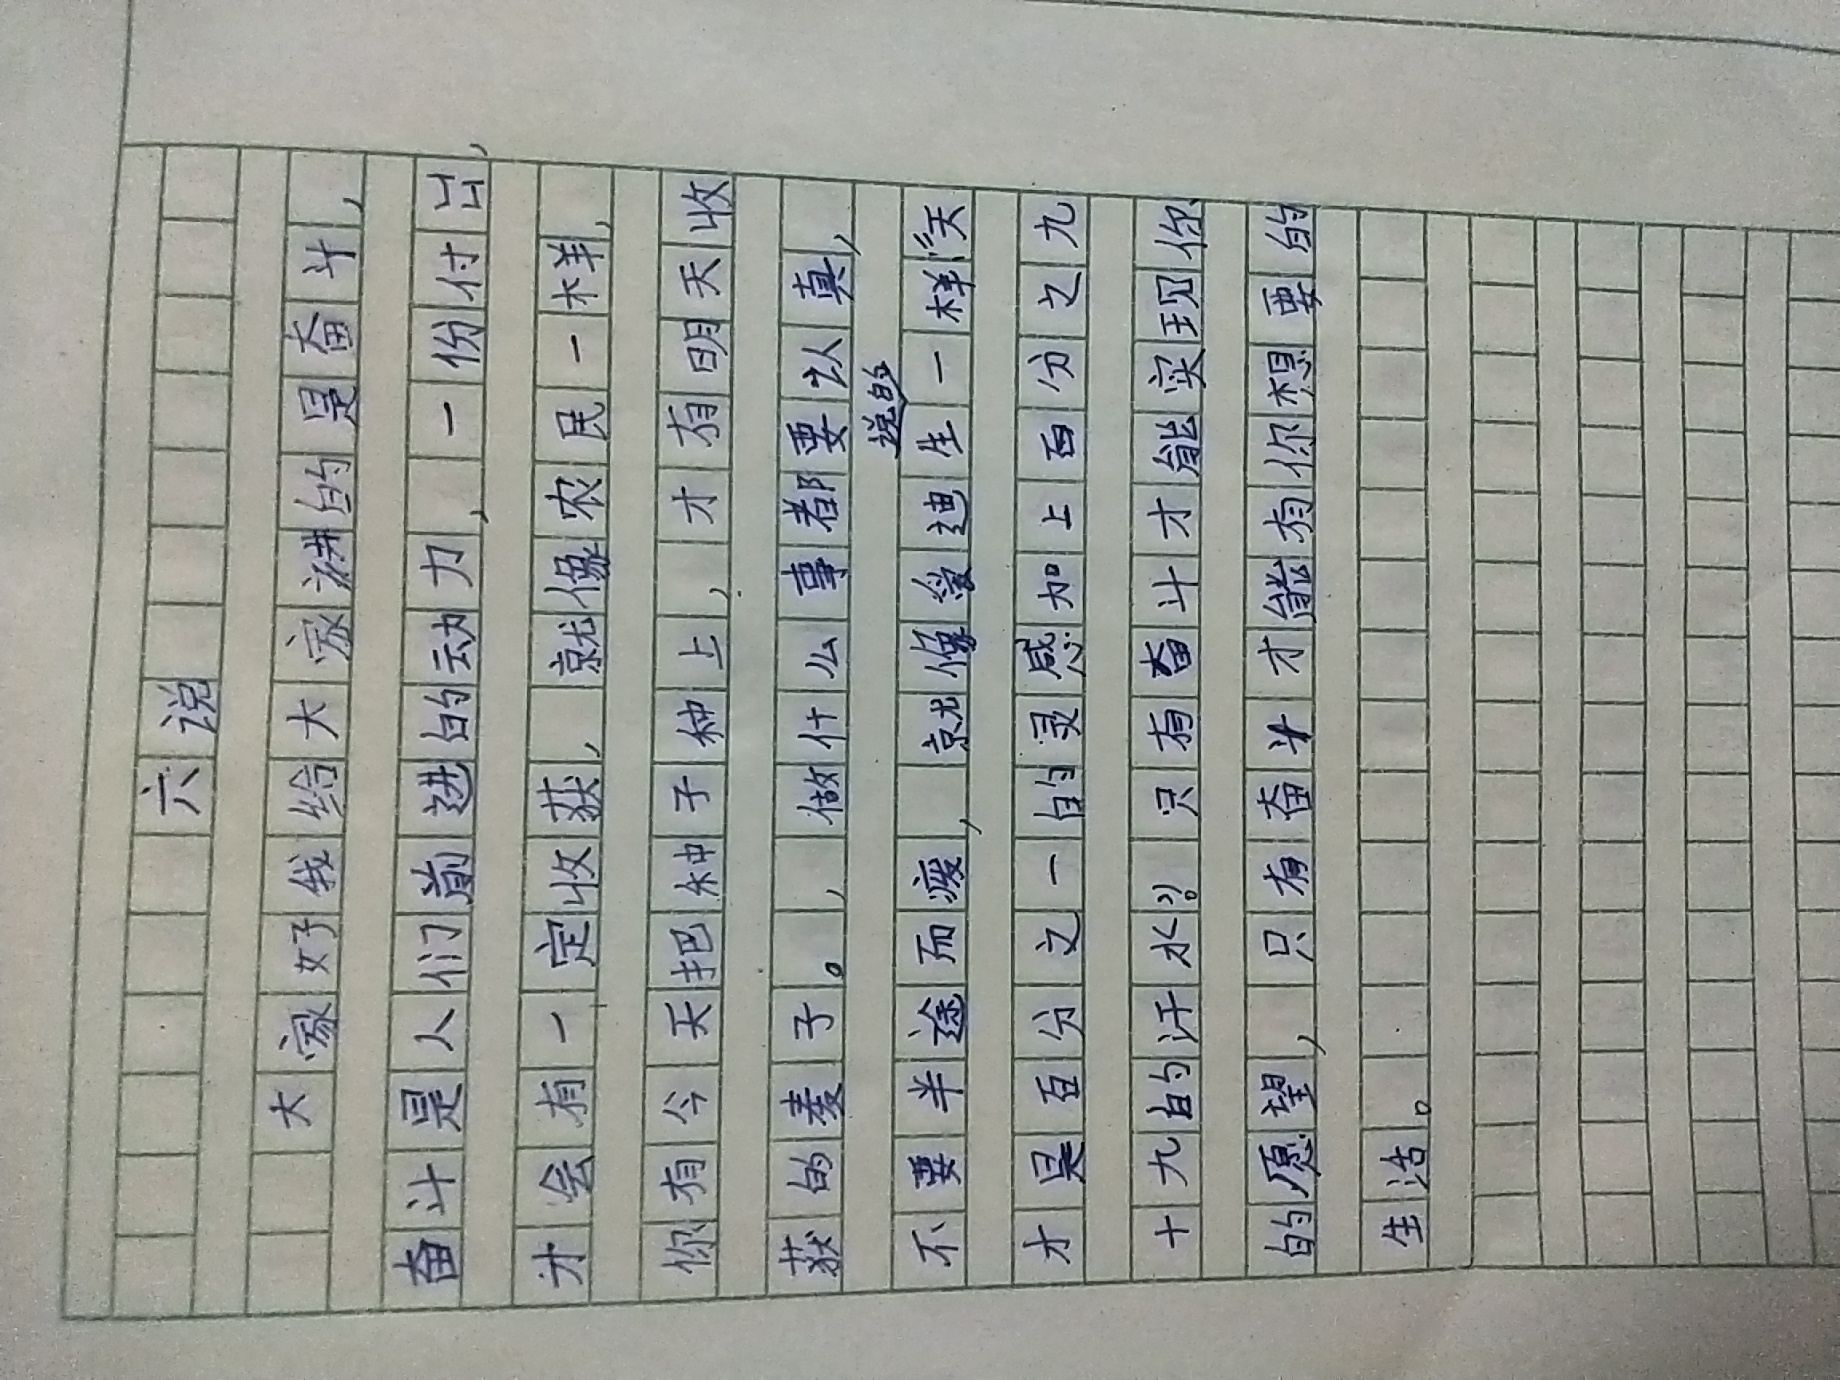 六说
大家好我给大家讲的是奋斗，
奋斗是人们前进的动力，一份付出，
才会有一定收获，就像农民一样，
你有今天把种子种上，才有明天收
获的麦子。，做什么事都要认真，
不要半途而废，就像爱迪生说的一样“天
才是百分之一的灵感加上百分之九
十九的汗水”。只有奋斗才能实现你
的愿望，只有奋斗才能有你想要的
生活。